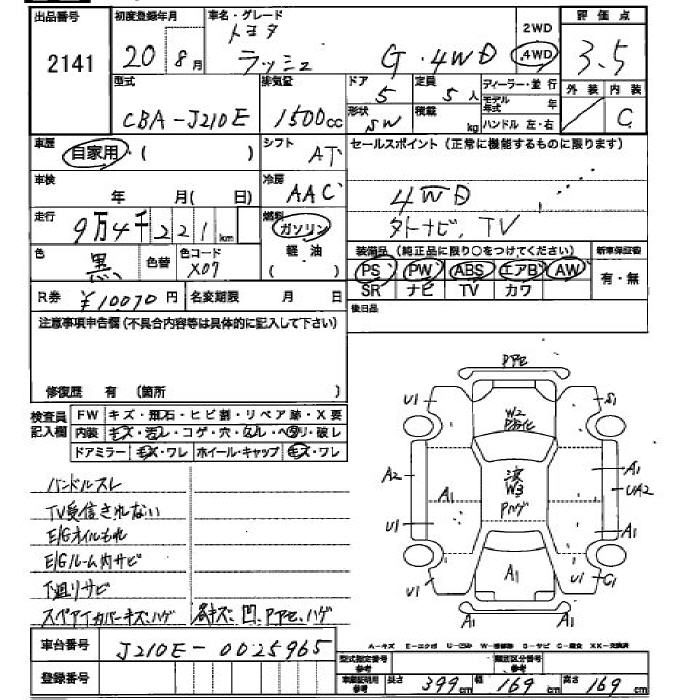 出品番号 初度登録年月 車名・グレード 評価点
2141 20 8月 トヨタ 2WD
ラッシュ G・4WD .4WD 3.5
型式 排気量 ドア 定員 ディーラー・並行 外装 内装
CBA-J210E 1500cc 5 5人 モデル年式 年 C
形状 SW 積載 kg ハンドル 左・右
車歴 自家用・( ) シフト AT セールスポイント(正常に機能するものに限ります)
車検 年 月( 日) 冷房 AAC 4WD
走行 9万4千221km 燃料 ガソリン 外ナビ、TV
色 黒 色替 色コード X07 軽油 ( ) 装備品(純正品に限り○をつけてください) 新車保証書
PS PW ABS エアB AW 有・無
SR ナビ TV カワ
R券 ¥10070円 名変期限 月 日 後日品
注意事項申告欄(不具合内容等は具体的に記入して下さい)
修復歴 有 (箇所 )
検査員記入欄 FW キズ・飛石・ヒビ割・リペア跡・X要
内装 キズ・汚レ・コゲ・穴・スレ・ヘタリ・破レ
ドアミラー キズ・ワレ ホイール・キャップ キズ・ワレ
ハンドルスレ
TV受信されない
E/Gオイルもれ
E/Gルーム内サビ
下廻りサビ
スペアタイヤカバーキズ・ハゲ 各キズ、凹、PPE、ハゲ
PPE
U1 S1
W2
A2 W3 A1 UA2
Pハゲ
A1 A1
U1 A1
U1 A1 U1 C1
A1 A1
車台番号 J210E-0025965
A-キズ E-エクボ U-凹ミ W-補修跡 S-サビ C-腐食 XX-交換済
登録番号 型式指定番号参考 類別区分番号参考
車庫証明用参考 長さ 399cm 幅 169cm 高さ 169cm